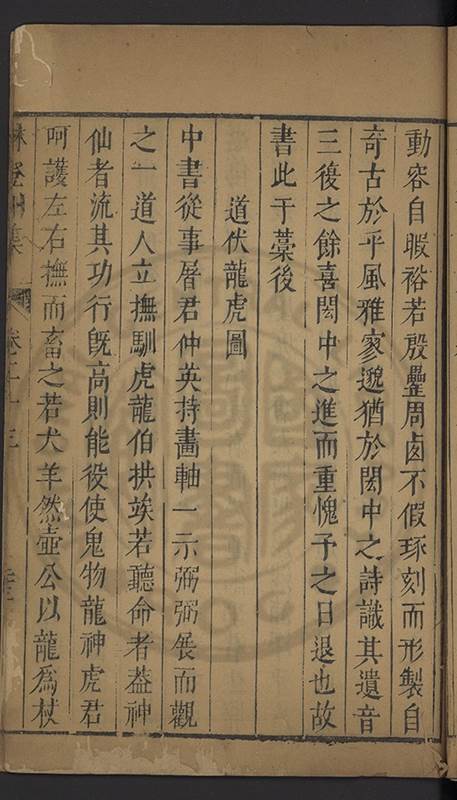 動容自暇裕若殷罍周卣不假琢刻而形製自
奇古於乎風雅寥邈猶於閎中之詩識其遺音
三復之餘喜閎中之進而重愧予之日退也故
書此于藁後
道伏龍虎圖
中書從事屠君仲英持畵軸一示弼弼展而觀
之一道人立撫馴虎龍伯拱竢若聽命者葢神
仙者流其功行旣高則能役使鬼物龍神虎君
呵護左右撫而畜之若犬羊然壺公以龍爲杖
林登州集 卷二十三